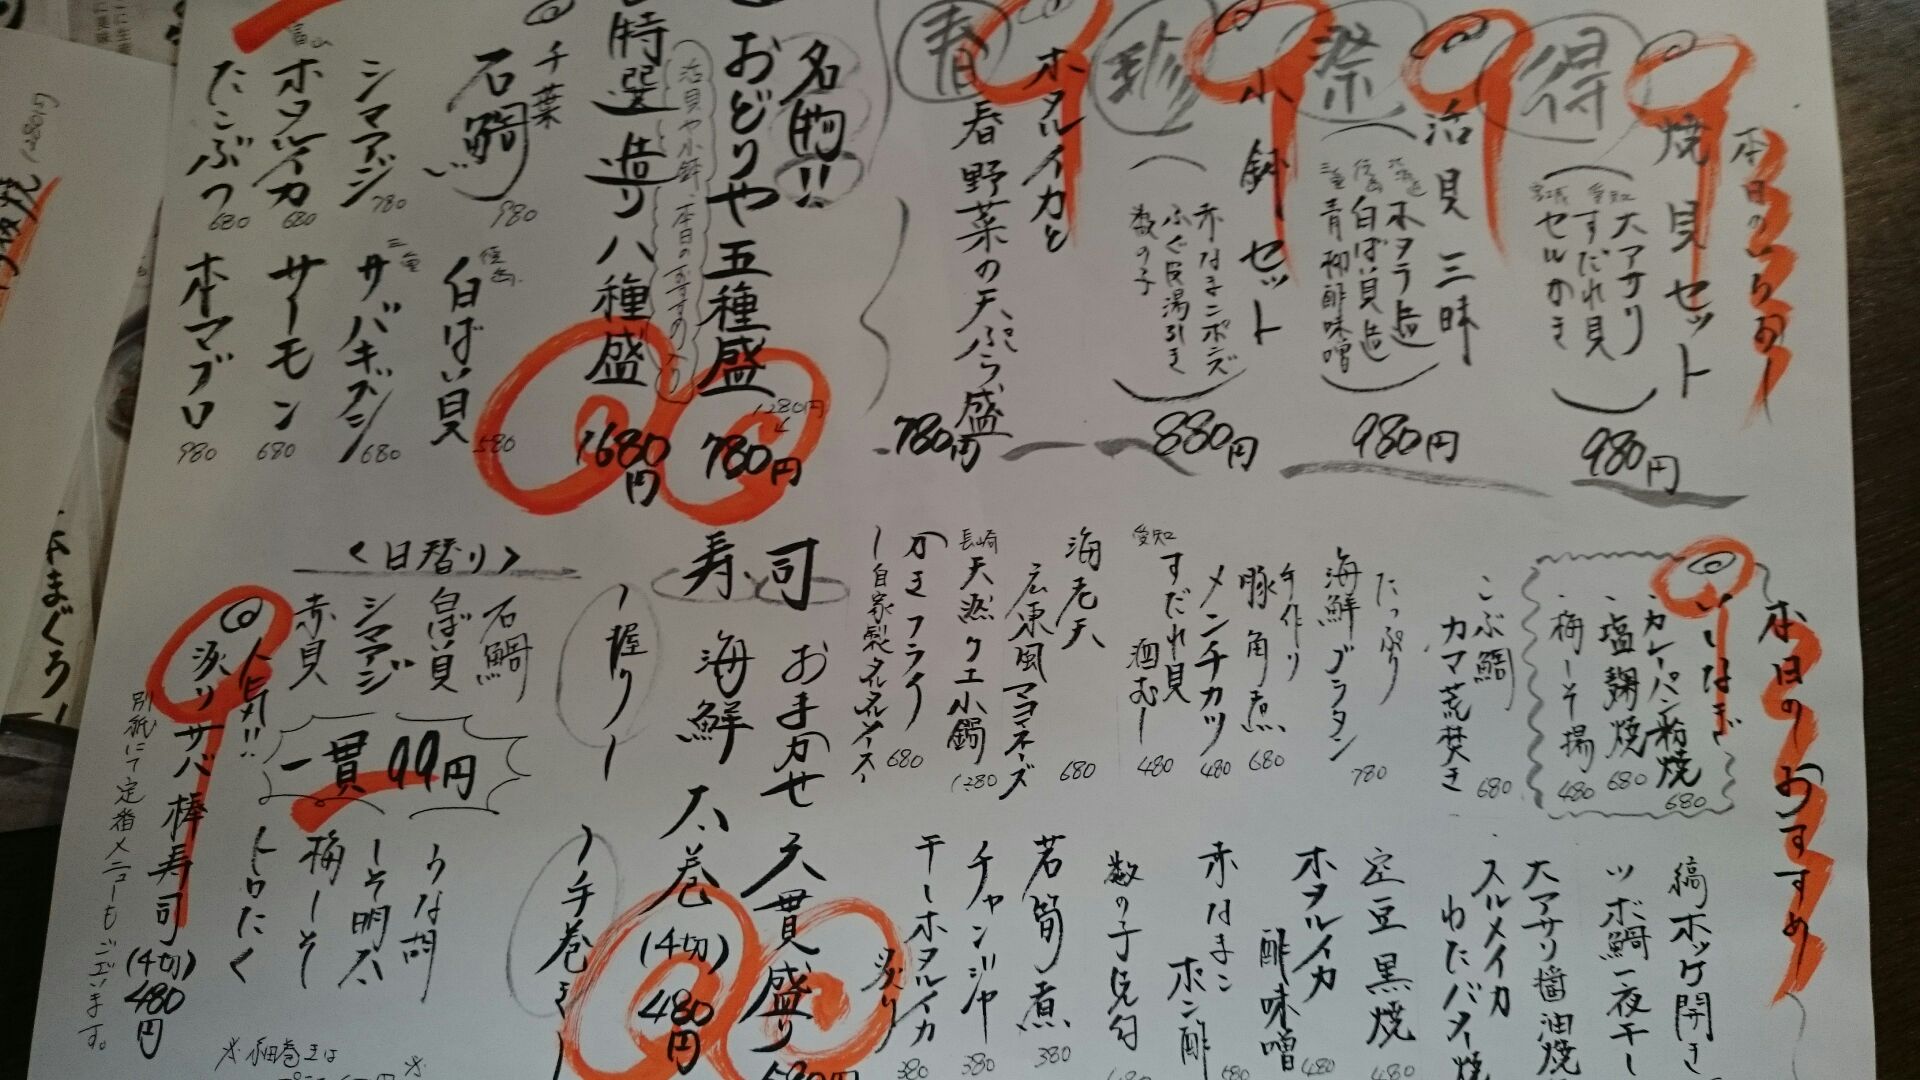 本日の
焼貝セット
得
愛知 大アサリ
すだれ貝
宮城 セルかき
980円
活貝三昧
祭
北海道 ホタテ造
徳島 白ばい貝造
三重 青柳酢味噌
980円
小鉢セット
珍
赤なまこポンズ
ふぐ皮湯引き
数の子
880円
ホタルイカと
春野菜の天ぷら盛
春
780円
名物!!
おどりや五種盛
1280円
780円
活貝や小鉢、本日のおすすめ入り
特選造り八種盛
1680円
千葉
石鯛 980
徳島
白ばい貝 580
シマアジ 780
三重
サバキズシ 680
富山
ホタルイカ 680
サーモン 680
たこぶつ 680
本マグロ 980
本日のおすすめ
いなぎ
・カレーパン粉焼 680
・塩麹焼 680
・梅しそ揚 480
こぶ鯛
カマ荒焚き 680
たっぷり
海鮮グラタン 780
手作り
豚角煮 680
メンチカツ 480
愛知
すだれ貝
酒むし 480
海老天
広東風マヨネーズ 680
長崎
天然クエ小鍋 1280
かきフライ 680
ー自家製タルタルソースー
縞ホッケ開き
ツボ鯛一夜干し
大アサリ醤油焼
スルメイカ
わたバター焼
空豆黒焼 480
ホタルイカ
酢味噌 480
赤なまこ
ポン酢 680
数の子
若筍煮 380
チャンジャ 380
干しホタルイカ
炙り 380
寿司
おまかせ
六貫盛り
海鮮
太巻 (4切) 480円
ー握りー
<日替り>
石鯛
白ばい貝
シマアジ
赤貝
一貫99円
ー手巻きー
うな胡
しそ明太
梅しそ
トロたく
人気!!
炙りサバ棒寿司 (4切) 480円
別紙にて定番メニューもございます。
※細巻きは
本まぐろ